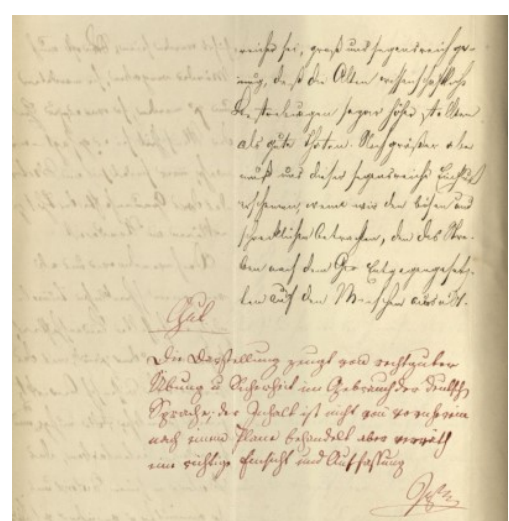 reicher sei, groß und segensreich ge-
nug, daß die Alten wissenschaftliche
Bestrebungen sogar höher stellten
als gute Thaten. Noch größer aber
muß uns dieser segensreiche Einfluß
erscheinen, wenn wir den bösen und
schrecklichen betrachten, den das Stre-
ben nach dem Entgegengesetz-
ten auf den Menschen ausübt.
Gut
Die Darstellung zeugt von recht guter
Übung u Sicherheit im Gebrauch der deutsch
Sprache; der Inhalt ist nicht von vornherein
nach einem Plane behandelt aber verräth
eine richtige Einsicht und Auffassung